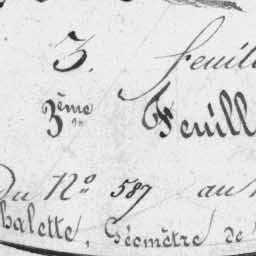 3. feuill
3ème Feuill
Du Nº 587 au
halette, Géomètre de